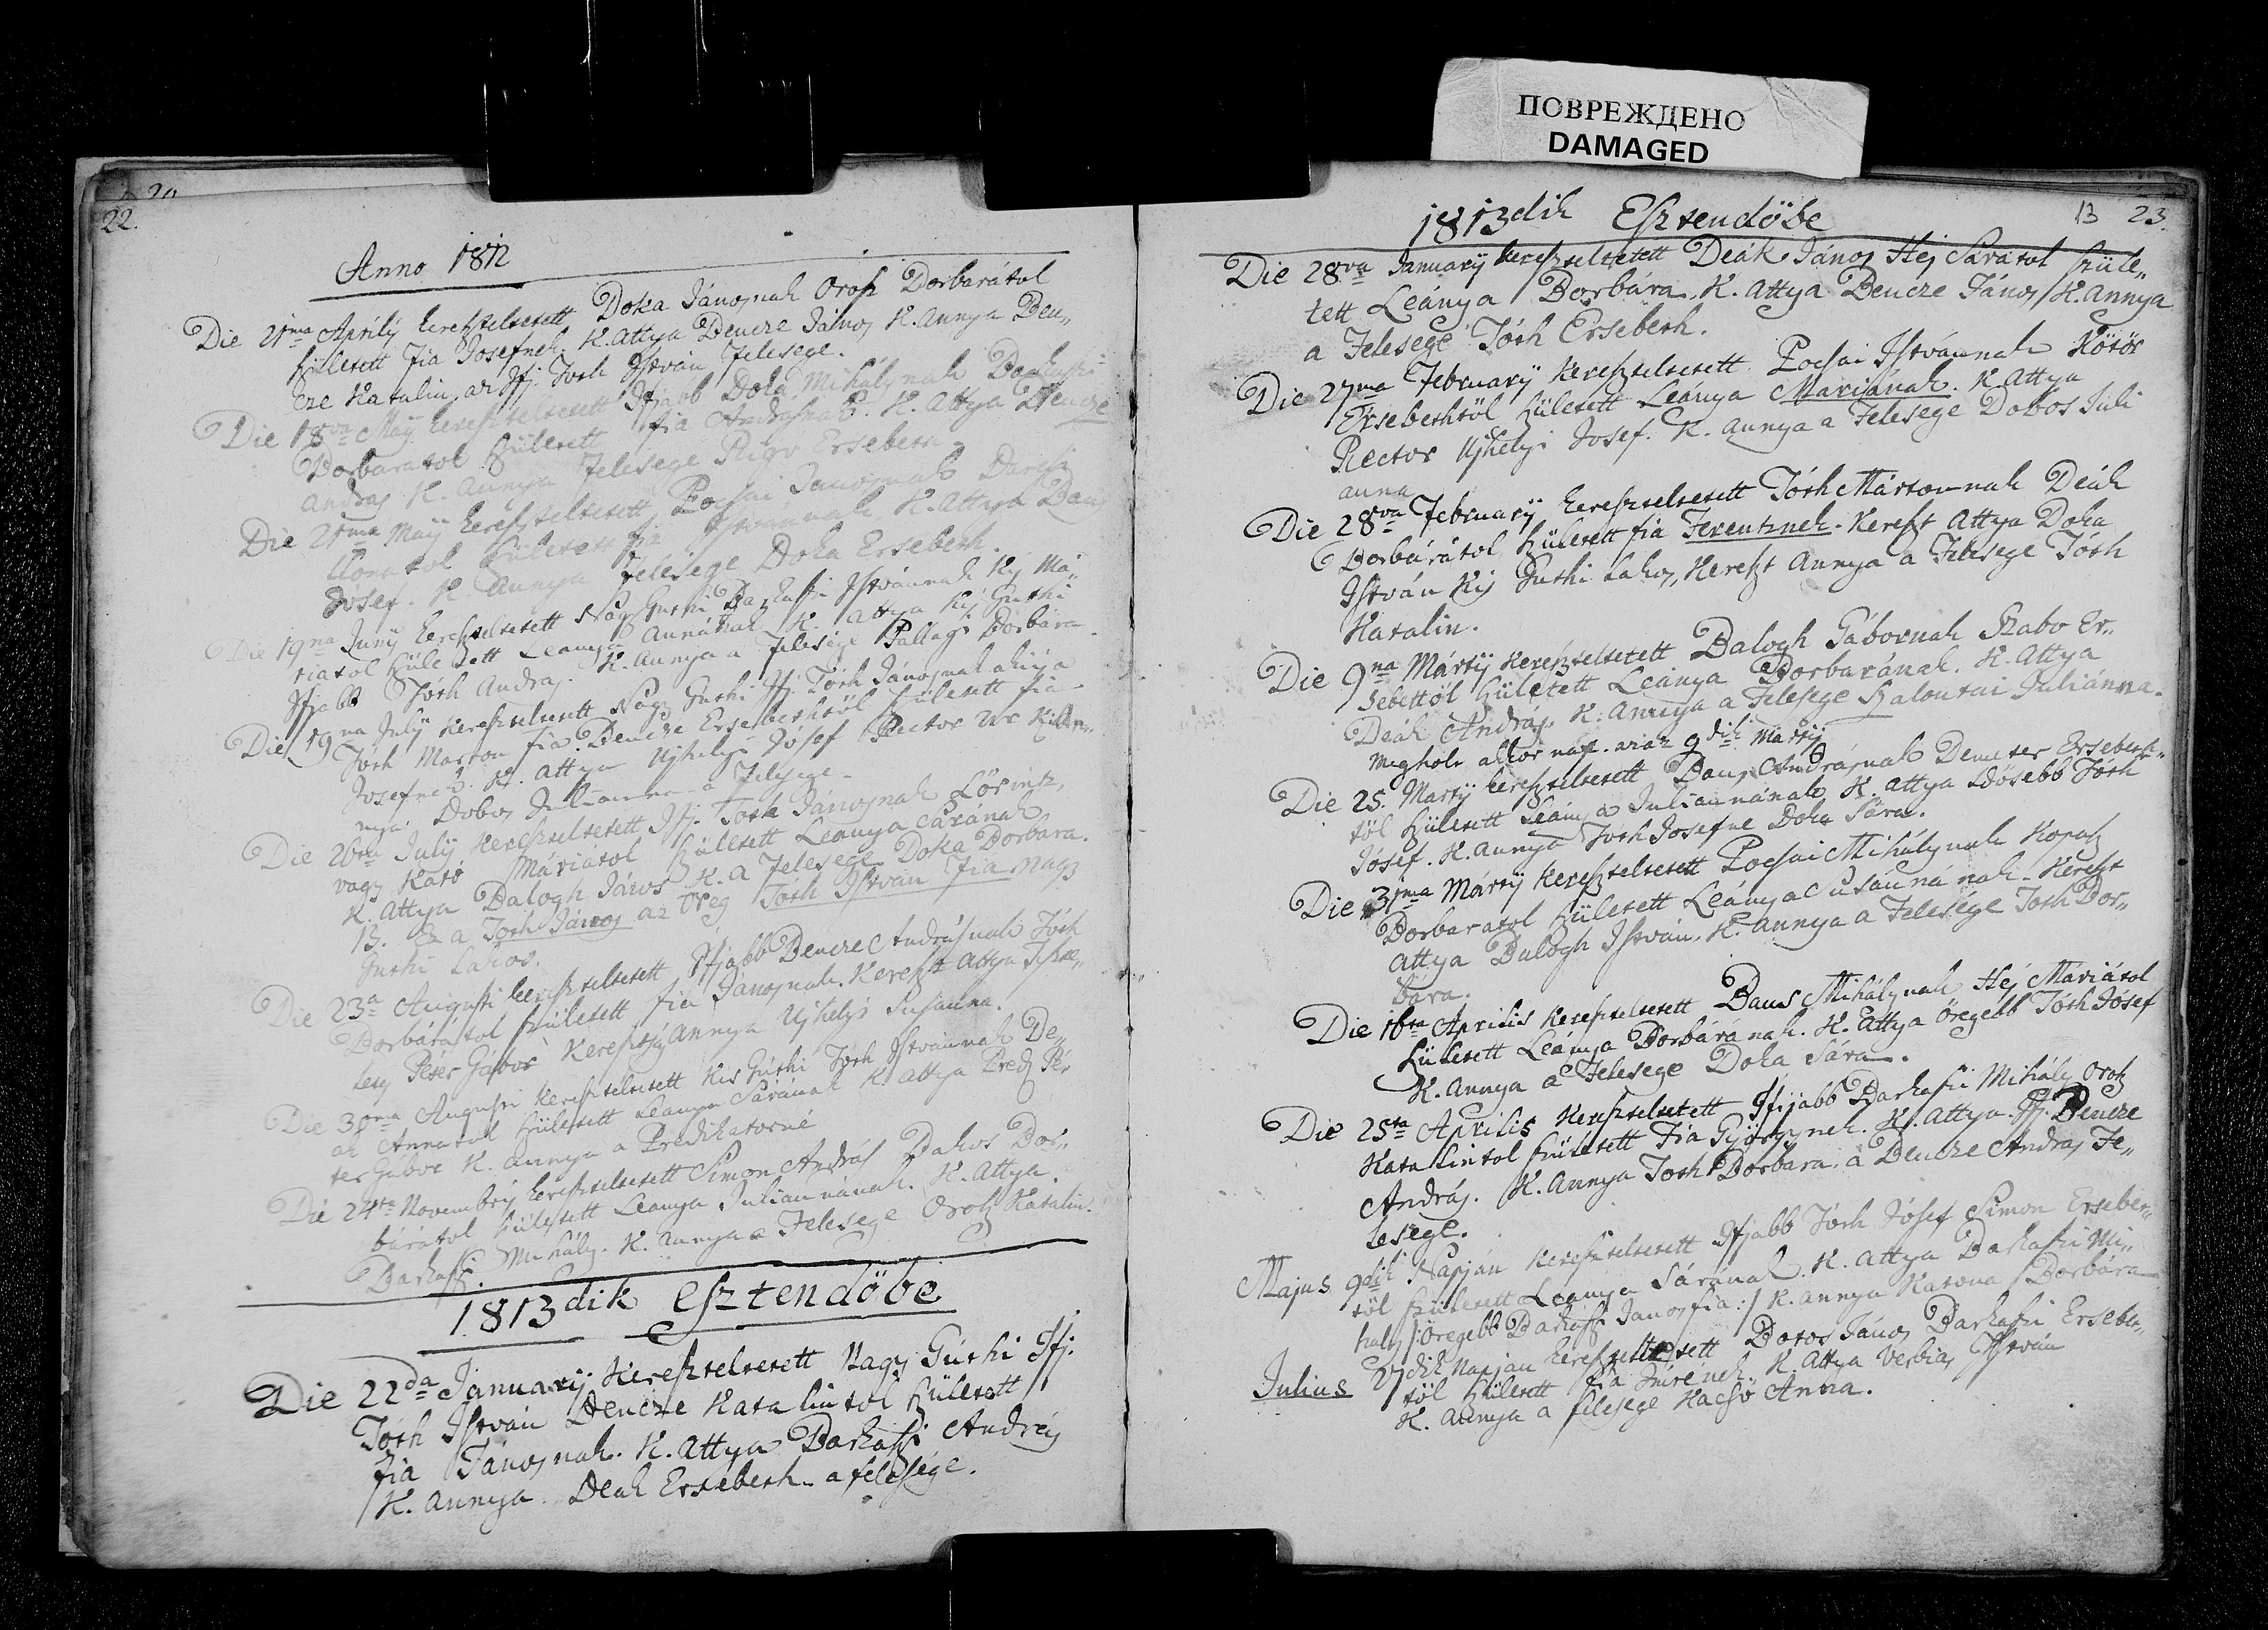 ПОВРЕЖДЕНО
DAMAGED
20
22.
Anno 1812
Die 21ma Aprily kereszteltetett Doka Jánosnak Orosz Borbarátol
született fia Josefnek. K. Attya Bencze János K. Annya Ben„
cze Katalin, az Ifj. Toth István felesege.
Die 18va Maij kereszteltetett Ifjabb Doka Mihálynak Barkaszi
Borbaratol született fia Andrásnak. K. Attya Bencze
Andras K. Annya felesege Ersebeth
Die 21ma Maij kereszteltetett Pocsai Janosnak
Ilonatol született fia Istvannak K. Attya Dan
Josef. K. Annya felesége Doka Ersebeth.
Die 19na Junij kereszteltetett Nagy Guthi Barkaszi Istvánnak Kis Má„
riatol született Leanya Annának K. Attya Kis Guthi
Ifjabb Tóth Andras. K. Annya a felesége Pallagi Borbára.
Die 19na Julij kereszteltetett Nagy Guthi Ifj. Tóth Jánosnak
Tóth Marton fia Bencze Ersebethtöl született fia
Josefnek. K. Attya Ujhelyi Jósef Rector Ur K. An„
nya. Dobos Julianna a felesege.
Die 26ta Julij kereszteltetett Ifj. Toth Jánosnak Lörintz,
vagy Kató Máriátol született Leanya Sárának
K. Attya Balogh János K. A felesege Doka Borbara.
13. Ez a Tóth János az öreg Tóth István fia Nagy
Guthi Lakos.
Die 23a Augusti kereszteltetett Ifjabb Bencze Andrásnak Tóth
Borbárátol született fia Jánosnak. Kereszt Attya Tiszte„
letes Péter Gábor Keresztÿ Annya Ujhelyi Susanna.
Die 30ma Augusti kereszteltetett Kis Guthi Tóth Istvannak De„
ák Annatol született Leanya Sárának K. Attya Pred. Pé„
ter Gábor K. Annya a Predikatorné
Die 24ta Novembris kereszteltetett Simon András Dakos Bor„
bárátol született Leanya Juliannának. K. Attya.
Barkaszi Mihály. K. Annya a Felesege Orosz Katalin.
1813dik Esztendöbe
Die 22da Januarij Kereszteltetett Nagy Gúthi Ifj.
Tóth István Bencze Katalintol született
fia Jánosnak. K. Attya Barkaszi András
K. Annya Deak Ersebeth a felesége.
1813dik Esztendöbe
13 23.
Die 28va Januarij kereszteltetett Deák János Héj Sarátol szüle„
tett Leánya Borbára. K. Attya Bencze János K. Annya
a Felesege Tóth Ersebeth.
Die 27ma Februarij Kereszteltetett Pocsai Istvánnak Kötör
Ersebethtöl született Leánya Mariának. K. Attya
Rector Ujhelyi Josef. K. Annya a Felesege Dobos Juli
anna
Die 28va Februarij kereszteltetett Tóth Mártonnak Deák
Borbárátol született fia Ferentznek. Kereszt Attya Doka
István Kis Guthi Lakos, Kereszt Annya a Felesege Tóth
Katalin.
Die 9na Mártij Kereszteltetett Balogh Gábornak Szabo Er„
sebettöl született Leánya Borbarának. K. Attya
Deák András. K. Annya a Felesege Kalontai Juliánna.
Megholt aktor nap. az az 9dik Martij
Die 25. Martij kereszteltetett Daus Andrásnak Demeter Ersebeth„
töl született Leánya Juliannának K. Attya Idösebb Tóth
Jósef. K. Annya Toth Josefne Doka Sára.
Die 31ma Mártij Kereszteltetett Pocsai Mihálynak Kopatz
Borbaratol született Leánya Susánnának. Kereszt
Attya Balogh István. K. Annya a Felesége Toth Bor„
bára.
Die 16ta Aprilis Kereszteltetett Daus Mihálynak Héj Máriátol
született Leánya Borbáranak. K. Attya öregebb Tóth Jósef
K. Annya a Felesege Doka Sára.
Die 25ta Aprilis Kereszteltetett Ifijabb Barkaszi Mihály Orosz
Katalintol született Fia Györgynek. K. Attya. Ifj. Bencze
András. K. Annya Toth Borbara, a Bencze Andras Fe„
lesege.
Majus 9dik Napján Kereszteltetett Ifjabb Tóth Jósef Simon Erseber„
töl született Leanya Sárának. K. Attya Barkaszi Mi„
haly /: öregebb Barkaszi Janos fia :/ K. Annya Katona Borbára
Julius 27dik Napjan kereszteltetett Botos János Barkaszi Erseber„
töl született fia Imrének. K. Attya Verbias István
K. Annya a felesege Kacso Anna.